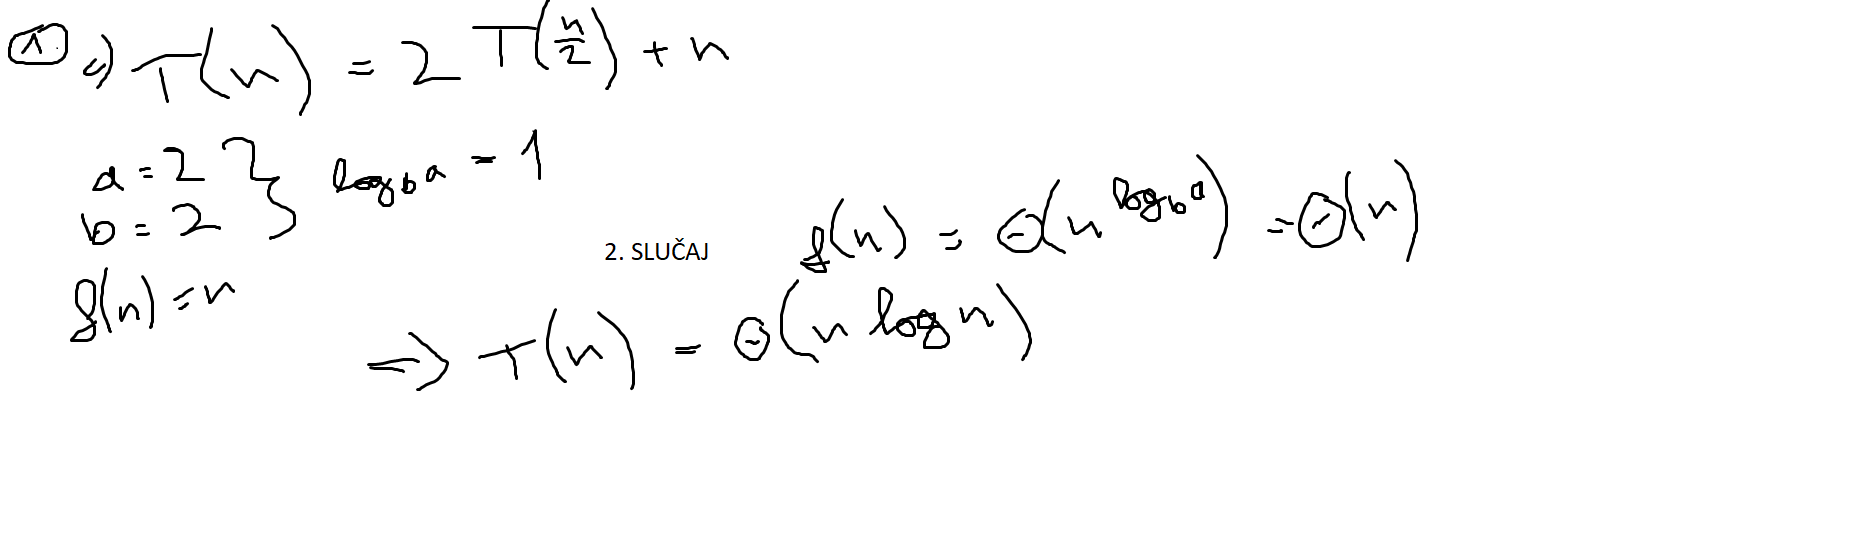 1 a) T(n) = 2 T(n/2) + n
a = 2
b = 2 } log_b a = 1
f(n) = n
2. SLUČAJ f(n) = Θ(n^(log_b a)) = Θ(n)
=> T(n) = Θ(n log n)